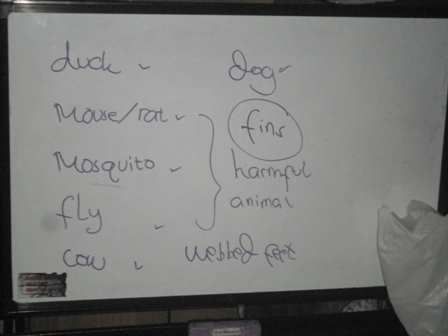 duck
Mouse/rat
Mosquito
fly
cow
dog
fins
harmful
animal
webbed feet